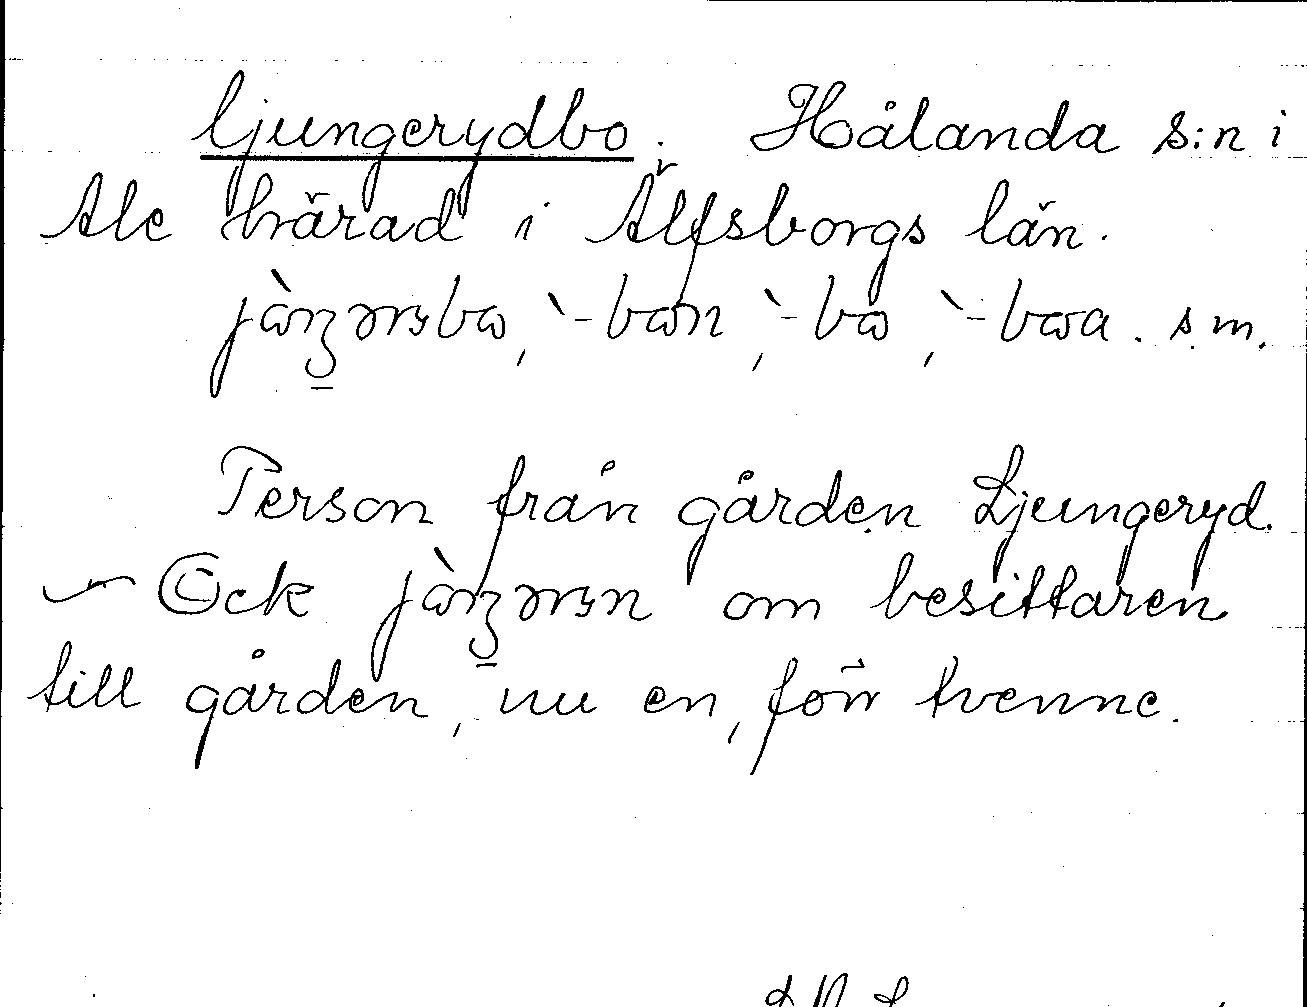 ljungerydbo. Hålanda s:n i
Ale härad i Älfsborgs län.
s.m.
Person från gården Ljungeryd.
— Ock om besittaren
till gården, nu en, förr tvenne.